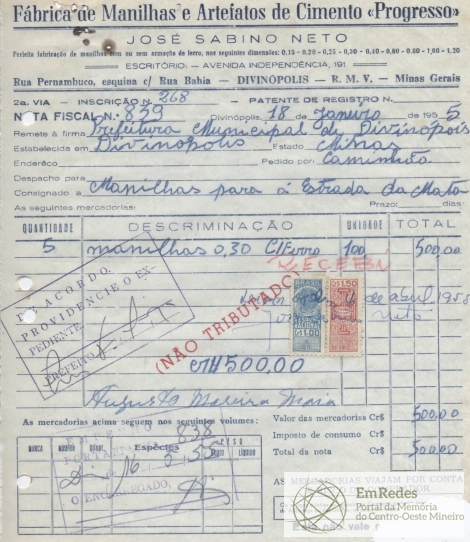 Fábrica de Manilhas e Artefatos de Cimento «Progresso»
JOSÉ SABINO NETO
Perfeita fabricação de manilhas com ou sem armação de ferro, nas seguintes dimensões: 0,15 - 0,20 - 0,25 - 0,30 - 0,40 - 0,50 - 0,80 - 1,00 - 1,20
ESCRITÓRIO - AVENIDA INDEPENDENCIA, 191
Rua Pernambuco, esquina c/ Rua Bahia - DIVINÓPOLIS - R. M. V. - Minas Gerais
2a. VIA - INSCRIÇÃO N. 268 - PATENTE DE REGISTRO N.
NOTA FISCAL N.º 839 Divinópolis, 18 de Janeiro de 1955
Remete á firma Prefeitura Municipal de Divinópolis
Estabelecida em Divinópolis Estado Minas
Endereço Pedido por Caminhão
Despacho para
Consignado a Manilhas para á Estrada da Mata
As seguintes mercadorias: Prazo: dias
QUANTIDADE DESCRIMINAÇÃO UNIDADE TOTAL
5 manilhas 0,30 C/Ferro 100 500,00
RECEBI
DE ACORDO.
PROVIDENCIE O EXPEDIENTE.
PREFEITO
(NÃO TRIBUTADO)
de abril 1955
BRASIL
Cr$ 1,00
C$1,50
Cr$ 500,00
Augusto Moreira Maia
As mercadorias acima seguem nos seguintes volumes:
Valor das mercadorias Cr$ 500,00
Imposto de consumo Cr$
Total da nota Cr$ 500,00
MARCA Espécies PESO
BRUTO LÍQUIDO
838
O ENCARREGADO,
AS MERCADORIAS VIAJAM POR CONTA
EmRedes
Portal da Memória
do Centro-Oeste Mineiro